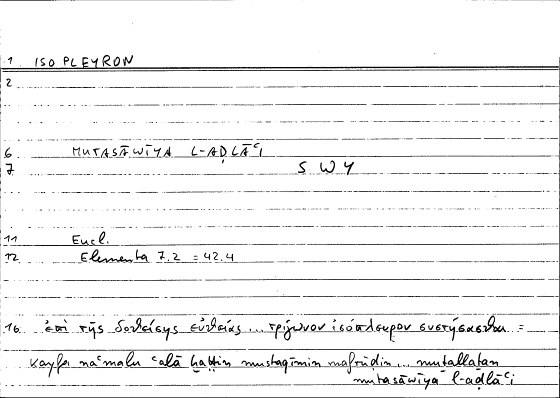 1 ISOPLEYRON
2
6 MUTASĀWĪYA L-AḌLĀʿI
7 S W Y
11 Eucl.
12 Elementa 7.2 = 42.4
16 ἐπὶ τῆς δοθείσης εὐθείας ... τρίγωνον ἰσόπλευρον συστήσασθαι =
kayfa naʿmalu ʿalā ḫaṭṭin mustaqīmin mafrūḍin ... muṯallaṯan
mutasāwiya l-aḍlāʿi